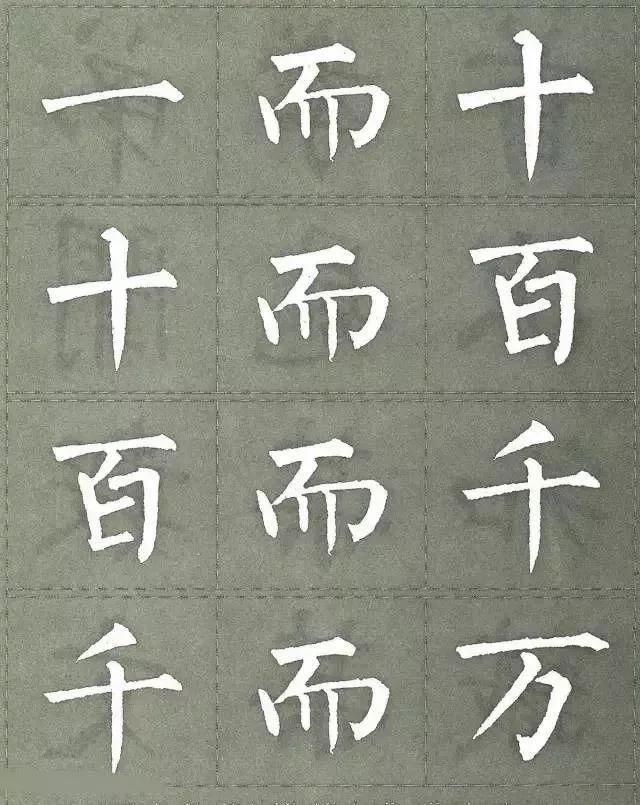 一而十
十而百
百而千
千而万